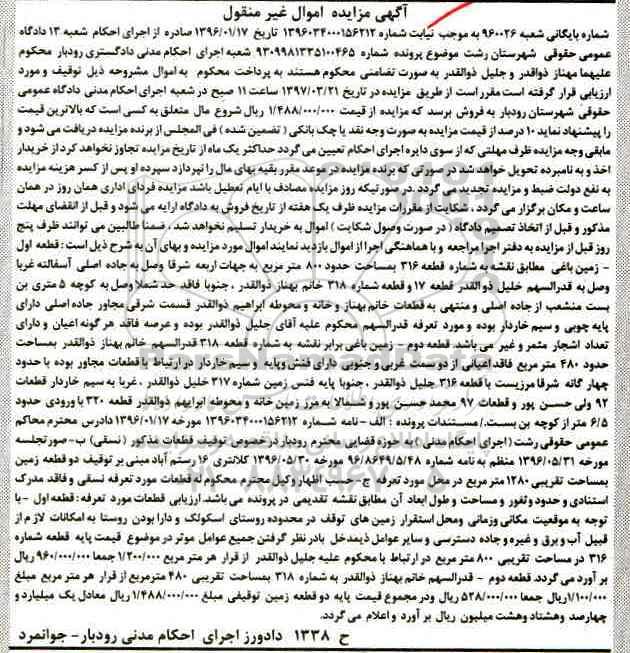 آگهی مزایده اموال غیر منقول
شماره بایگانی شعبه ۹۶۰۰۲۶ به موجب نیابت شماره ۱۳۹۶۰۳۴۰۰۰۱۵۶۲۱۲ تاریخ ۱۳۹۶/۰۱/۱۷ صادره از اجرای احکام شعبه ۱۳ دادگاه
عمومی حقوقی شهرستان رشت موضوع پرونده شماره ۹۳۰۹۹۸۱۳۳۵۱۰۰۴۶۵ شعبه اجرای احکام مدنی دادگستری رودبار محکوم
علیهما مهناز ذوالقدر و جلیل ذوالقدر به صورت تضامنی محکوم هستند به پرداخت محکوم به اموال مشروحه ذیل توقیف و مورد
ارزیابی قرار گرفته است مقرر است از طریق مزایده در تاریخ ۱۳۹۷/۰۳/۲۱ ساعت ۱۱ صبح در شعبه اجرای احکام مدنی دادگاه عمومی
حقوقی شهرستان رودبار به فروش برسد که مزایده از قیمت ۱/۴۸۸/۰۰۰/۰۰۰ ریال شروع مال متعلق به کسی است که بالاترین قیمت
را پیشنهاد نماید ۱۰ درصد از قیمت مزایده به صورت وجه نقد یا چک بانکی ( تضمین شده ) فی المجلس از برنده مزایده دریافت می شود و
مابقی وجه مزایده ظرف مهلتی که از سوی دایره اجرای احکام تعیین می گردد حداکثر یک ماه از تاریخ مزایده تجاوز نخواهد کرد از خریدار
اخذ و به نامبرده تحویل خواهد شد در صورتی که برنده مزایده در موعد مقرر بقیه بهای مال را نپردازد سپرده او پس از کسر هزینه مزایده
به نفع دولت ضبط و مزایده تجدید می گردد .در صورتیکه روز مزایده مصادف با ایام تعطیل باشد مزایده فردای اداری همان روز در همان
ساعت و مکان برگزار می گردد ، شکایت از مقررات مزایده ظرف یک هفته از تاریخ فروش به دادگاه ارایه می شود و قبل از انقضای مهلت
مذکور و قبل از اتخاذ تصمیم دادگاه ( در صورت وصول شکایت ) اموال به خریدار تسلیم نخواهد شد ، ضمنا طالبین می توانند ظرف پنج
روز قبل از مزایده به دفتر اجرا مراجعه و با هماهنگی اجرا از اموال بازدید نمایند اموال مورد مزایده و بهای آن به شرح ذیل است : قطعه اول
- زمین باغی مطابق نقشه به شماره قطعه ۳۱۶ بمساحت حدود ۸۰۰ متر مربع به جهات اربعه شرقا وصل به جاده اصلی آسفالته غربا
وصل به قدرالسهم خلیل ذوالقدر قطعه ۱۷ و قطعه شماره ۳۱۸ خانم بهناز ذوالقدر ، جنوبا فاقد حد شمالا وصل به کوچه ۵ متری بن
بست منشعب از جاده اصلی و منتهی به قطعات خانم بهناز و خانه و محوطه ابراهیم ذوالقدر قسمت شرقی مجاور جاده اصلی دارای
پایه چوبی و سیم خاردار بوده و مورد تعرفه قدرالسهم محکوم علیه آقای جلیل ذوالقدر بوده و عرصه فاقد هر گونه اعیان و دارای
تعداد اشجار مثمر و غیر می باشد. قطعه دوم - زمین باغی برابر نقشه به شماره قطعه ۳۱۸ قدرالسهم خانم بهناز ذوالقدر بمساحت
حدود ۴۸۰ متر مربع فاقد اعیانی از دو سمت غربی و جنوبی دارای فنش و پایه و سیم خاردار در ارتباط با قطعات مجاور بوده با حدود
چهار گانه شرقا مرزیست با قطعه ۳۱۶ جلیل ذوالقدر ، جنوبا پایه فنس زمین شماره ۳۱۷ خلیل ذوالقدر ، غربا به سیم خاردار قطعات
۹۲ ولی حسن پور و قطعات ۹۷ محمد حسین پور و شمالا به مرز زمین خانه و محوطه ابراهیم ذوالقدر قطعه ۳۲۰ با ورودی حدود
۶/۵ متر از کوچه بن بست./مستندات پرونده : الف - نامه شماره ۱۳۹۶۰۳۴۰۰۰۱۵۶۲۱۲ مورخه ۱۳۹۶/۰۱/۱۷ دادرس محترم محاکم
عمومی حقوقی رشت (اجرای احکام مدنی ) به حوزه قضایی محترم رودبار در خصوص توقیف قطعات مذکور ( نسقی) ب- صورتجلسه
مورخه ۱۳۹۶/۰۵/۳۱ منظم به نامه شماره ۹۶/۸۶۴۹/۵/۴۸ مورخه ۱۳۹۶/۰۵/۳۰ کلانتری ۱۶ رستم آباد مبنی بر توقیف دو قطعه زمین
بمساحت تقریبی ۱۲۸۰ متر مربع در محل مورد تعرفه ج - حسب اظهار وکیل محترم محکوم له قطعات مورد تعرفه نسقی و فاقد مدرک
استنادی و حدود و ثغور و مساحت و طول ابعاد آن مطابق نقشه تقدیمی در پرونده می باشد.ارزیابی قطعات مورد تعرفه : قطعه اول - با
توجه به موقعیت مکانی وزمانی ومحل استقرار زمین های توقف در محدوده روستای اسکولک و دارا بودن روستا به امکانات لازم از
قبیل آب و برق و غیره و جاده دسترسی و سایر عوامل ذیمدخل بادر نظر گرفتن جمیع عوامل موثر در موضوع قیمت پایه قطعه شماره
۳۱۶ در مساحت تقریبی ۸۰۰ متر مربع در ارتباط با محکوم علیه جلیل ذوالقدر از قرار هر متر مربع ۱/۲۰۰/۰۰۰ جمعا ۹۶۰/۰۰۰/۰۰۰ ریال
بر آورد می گردد. قطعه دوم - قدرالسهم خانم بهناز ذوالقدر به شماره ۳۱۸ بمساحت تقریبی ۴۸۰ مترمربع از قرار هر متر مربع مبلغ
۱/۱۰۰/۰۰۰ریال جمعا ۵۲۸/۰۰۰/۰۰۰ ریال ودر مجموع قیمت پایه دو قطعه زمین توقیفی مبلغ ۱/۴۸۸/۰۰۰/۰۰۰ ریال معادل یک میلیارد و
چهارصد وهشتاد وهشت میلیون ریال بر آورد و اعلام می گردد.
ح ۱۳۳۸ دادورز اجرای احکام مدنی رودبار- جوانمرد